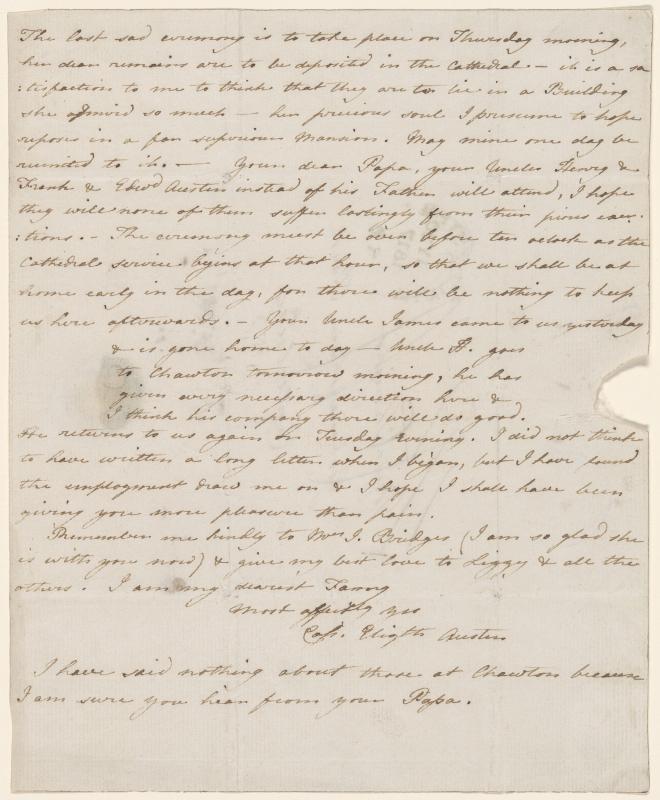 The last sad ceremony is to take place on Thursday morning,
her dear remains are to be deposited in the Cathedral — it is a sa
:tisfaction to me to think that they are to lie in a Building
she admired so much — her precious soul I presume to hope
reposes in a far superior Mansion. May mine one day be
reunited to it. — Your dear Papa, your Uncles Henry &
Frank & Edwd Austen instead of his Father will attend, I hope
they will none of them suffer lastingly from their pious exer-
:tions. — The ceremony must be over before ten o'clock as the
Cathedral service begins at that hour, so that we shall be at
home early in the day, for there will be nothing to keep
us here afterwards. — Your Uncle James came to us yesterday
& is gone home to day — Uncle H. goes
to Chawton tomorrow morning, he has
given every necessary direction here &
I think his company there will do good.
He returns to us again on Tuesday Evening. I did not think
to have written a long letter when I began, but I have found
the employment draw me on & I hope I shall have been
giving you more pleasure than pain.
Remember me kindly to Mrs J. Bridges (I am so glad she
is with you now) & give my best love to Lizzy & all the
others. I am my dearest Fanny
Most affectly yrs
Cass. Elizth Austen
I have said nothing about those at Chawton because
I am sure you hear from your Papa.